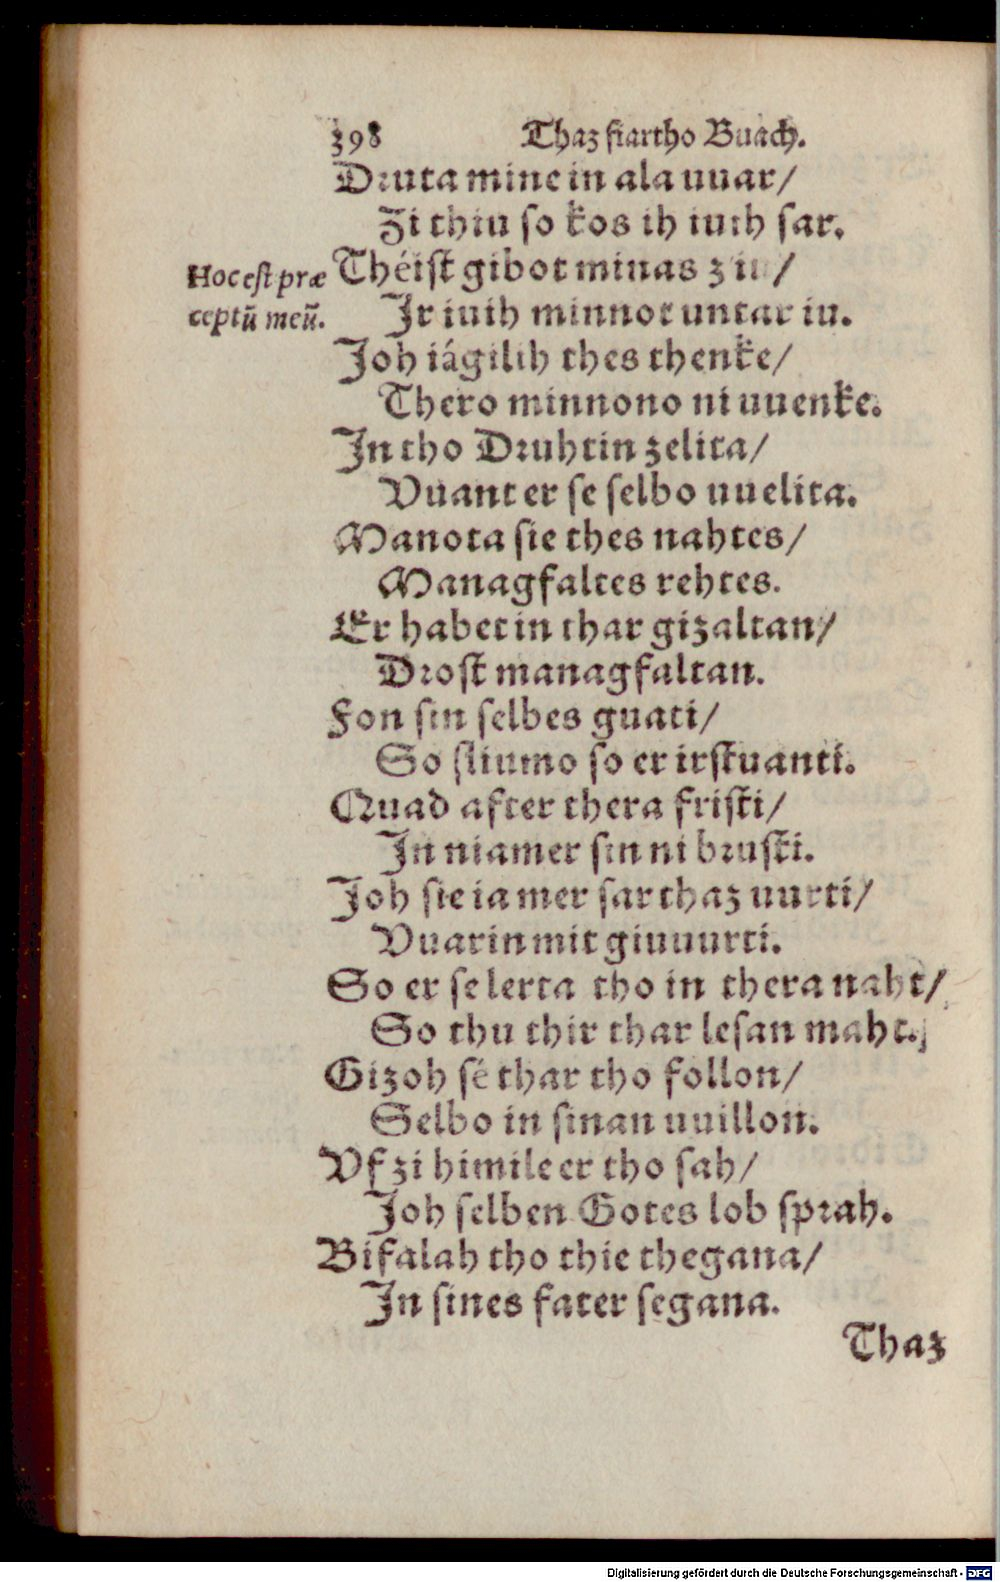 398 Thaz fiartho Buach.
Druta mine in ala uuar/
Zi thiu so kos ih iuih sar.
Hoc est præ
ceptũ meũ.
Théist gibot minas z iu/
Ir iuih minnot untar iu.
Joh iágilih thes thenke/
Thero minnono ni uuenke.
In tho Druhtin zelita/
Vuant er se selbo uuelita.
Manota sie thes nahtes/
Managfaltes rehtes.
Er habet in thar gizaltan/
Drost managfaltan.
Fon sin selbes guati/
So sliumo so er irstuanti.
Quad after thera fristi/
In niamer sin ni brusti.
Joh sie ia mer sar thaz uurti/
Vuarin mit giuuurti.
So er se lerta tho in thera naht/
So thu thir thar lesan maht.
Gizoh sé thar tho follon/
Selbo in sinan uuillon.
Vf zi himile er tho sah/
Joh selben Gotes lob sprah.
Bifalah tho thie thegana/
In sines fater segana.
Thaz
Digitalisierung gefördert durch die Deutsche Forschungsgemeinschaft - DFG